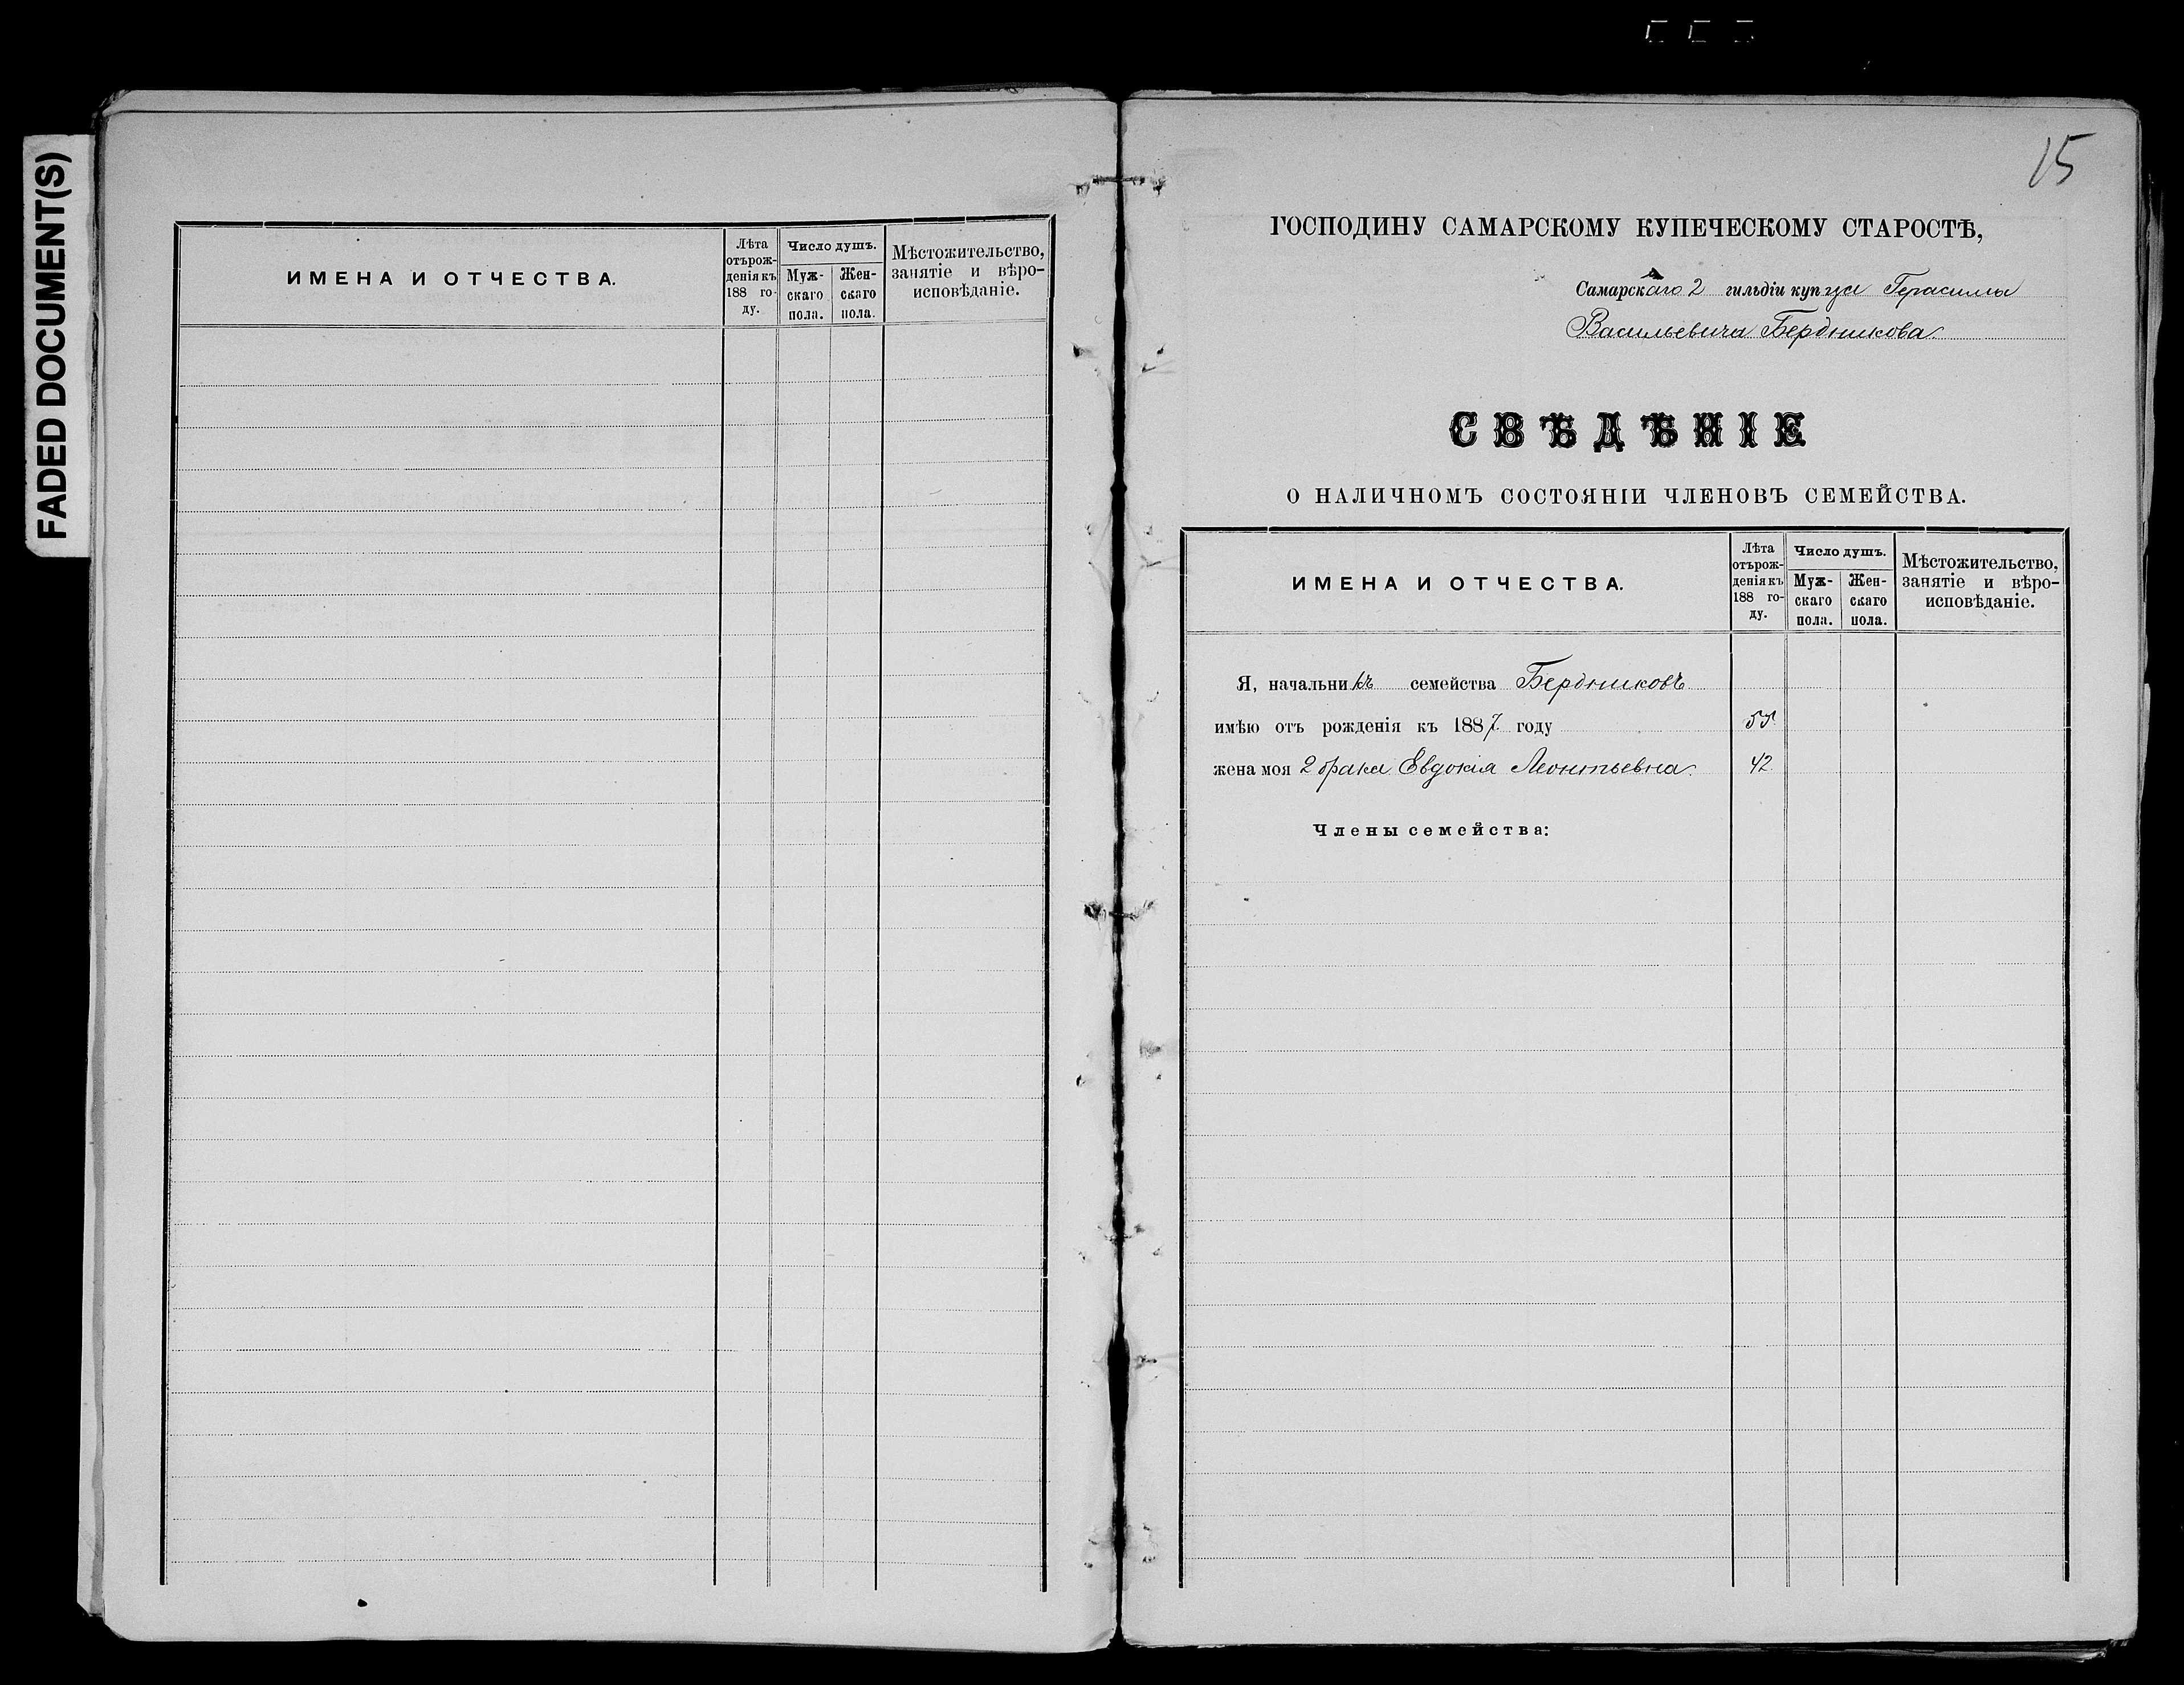 FADED DOCUMENT(S)
ИМЕНА И ОТЧЕСТВА.
Лѣта
отърож-
денія къ
188 го-
ду.
Число душъ.
Муж-
скаго
пола.
Жен-
скаго
пола.
Мѣстожительство,
занятіе и вѣро-
исповѣданіе.
15
ГОСПОДИНУ САМАРСКОМУ КУПЕЧЕСКОМУ СТАРОСТѢ,
Самарскаго 2 гильдіи купца Герасима
Васильевича Бердникова.
СВѢДѢНІЕ
О НАЛИЧНОМЪ СОСТОЯНІИ ЧЛЕНОВЪ СЕМЕЙСТВА.
ИМЕНА И ОТЧЕСТВА.
Лѣта
отърож-
денія къ
188 го-
ду.
Число душъ.
Муж-
скаго
пола.
Жен-
скаго
пола.
Мѣстожительство,
занятіе и вѣро-
исповѣданіе.
Я, начальникъ семейства Бердниковъ
имѣю отъ рожденія къ 1887 году 55
жена моя 2 брака Евдокія Леонтьевна. 42
Члены семейства: